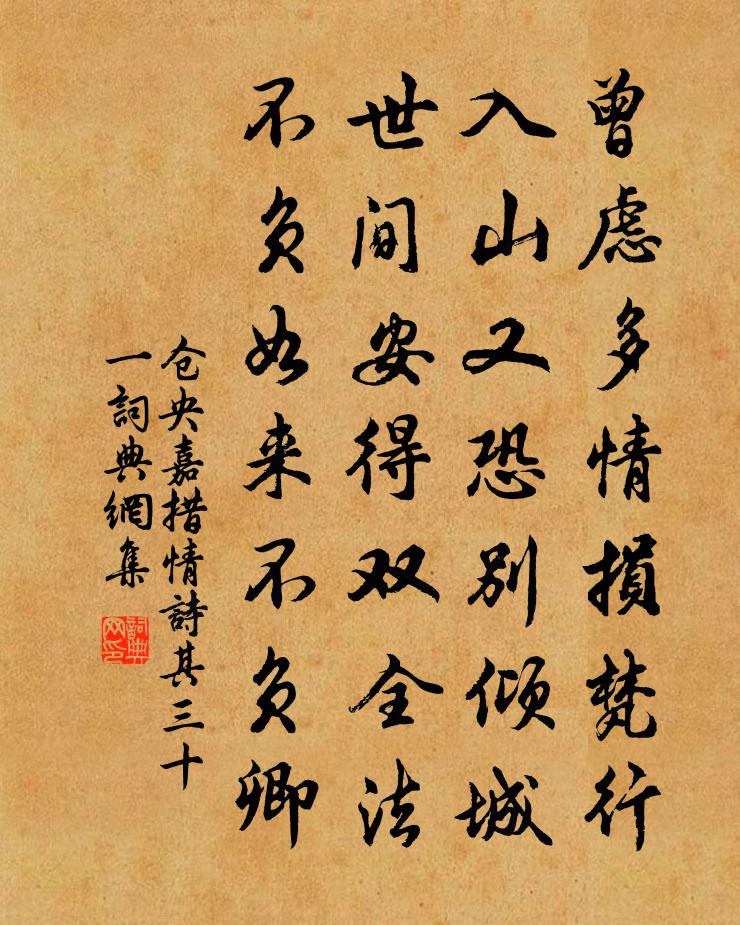 曾慮多情損梵行
入山又恐别傾城
世间安得双全法
不负如来不负卿
仓央嘉措情詩其三十
一詞典網集
詞典
网印